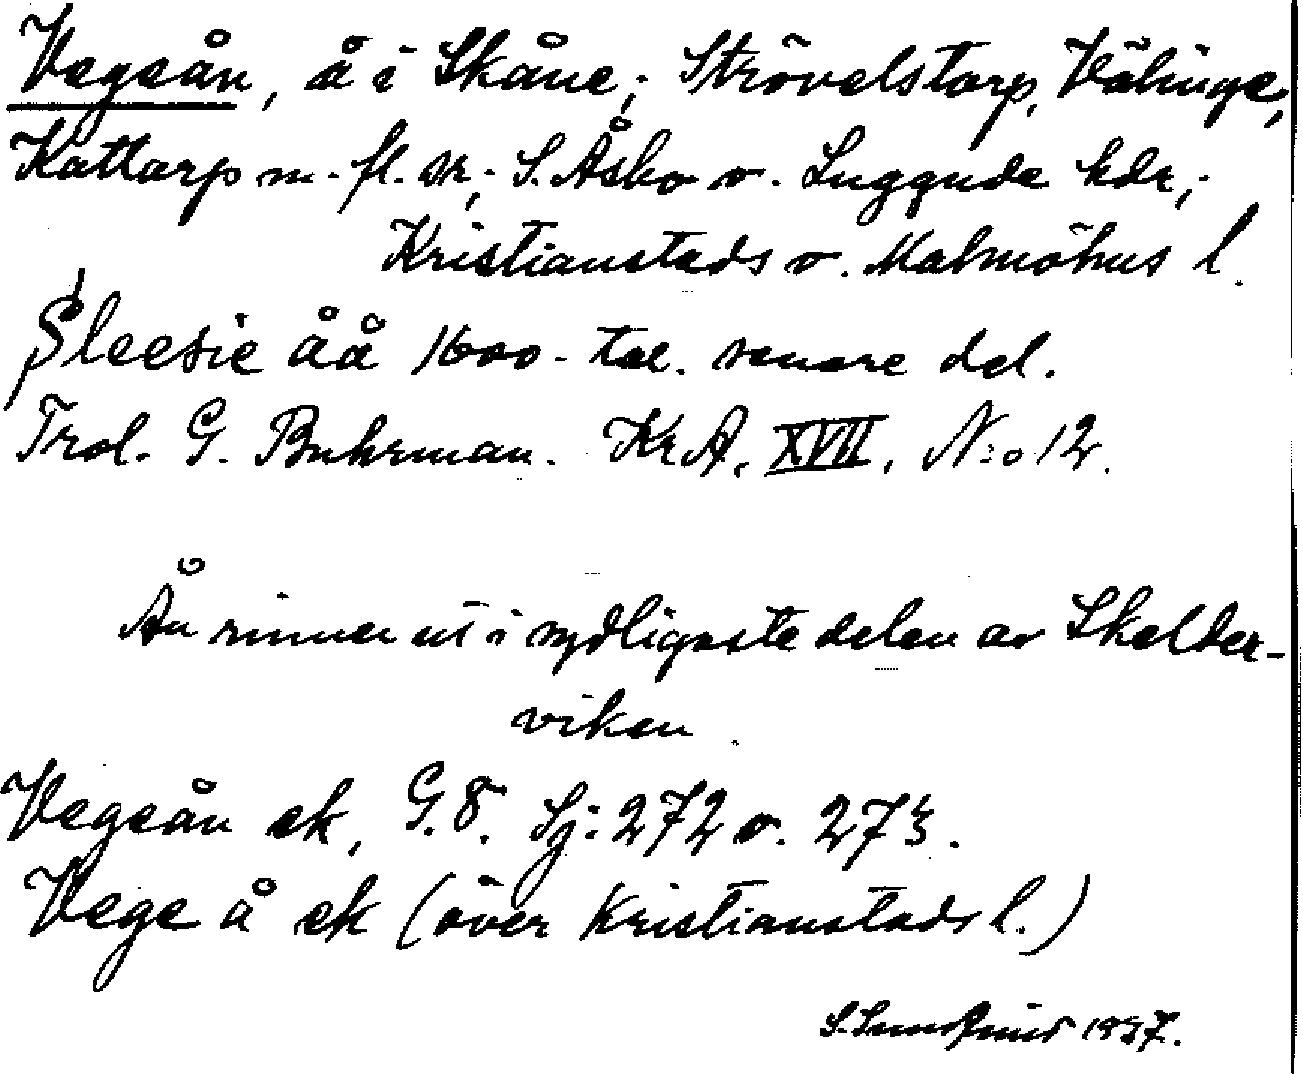 Vegeån, å i Skåne; Strövelstorp, Välinge,
Kattarp m. fl. snr; S. Åsbo o. Luggude hdr;
Kristianstads o. Malmöhus l.
Sleesie åå 1600-tal. senare del.
Trol. G. Buhrman. KrA, XVII, N:o 12.
Ån rinner ut i sydligaste delen av Skelder-
viken
Vegeån ek, G.8. Sj: 272 o. 273.
Vege å ek (över Kristianstads l.)
1937.